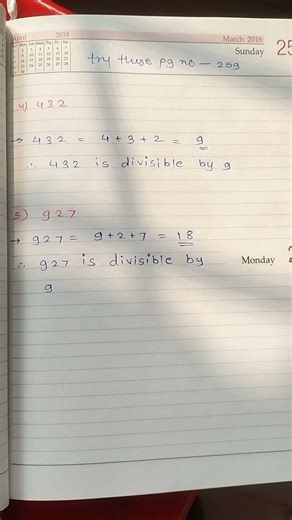 April 2018
March 2018
Sunday 25
try these pg no — 259
4) 432
→ 432 = 4+3+2 = 9
∴ 432 is divisible by 9
5) 927
→ 927 = 9+2+7 = 18
∴ 927 is divisible by
9
Monday